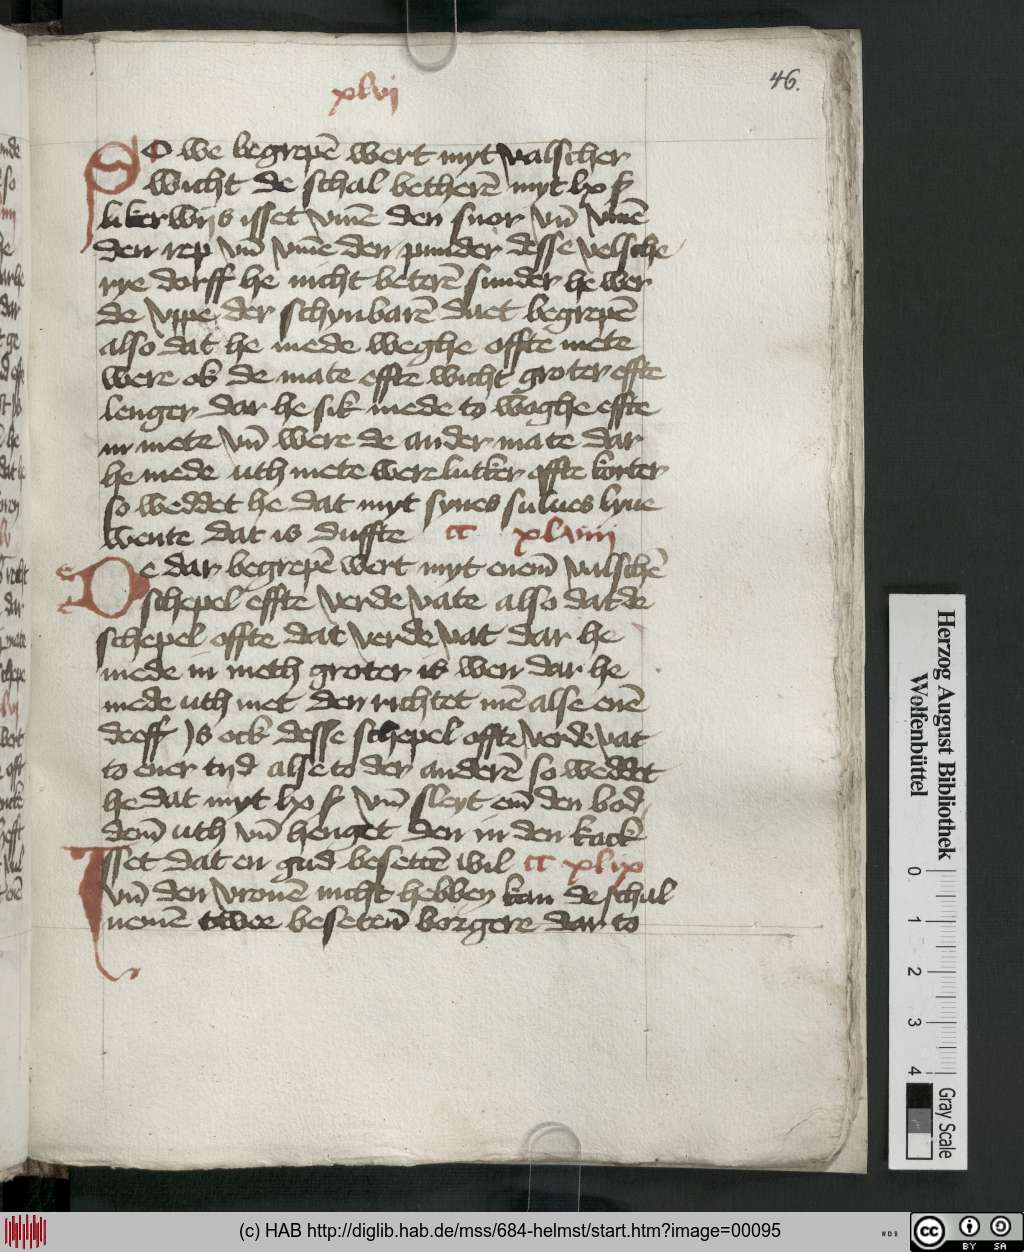 xlvi
46.
So we begrepē wert myt valscher
wicht de schal betherē myt lx ß
liker wijs isset vm̄e den snor vn̄ vm̄e
den rep vn̄ vm̄e den punder desse velsche
rye dorff he nicht beterē sunder he wer
de vppe der schynbarē daet begrepē
also dat he mede weghe offte mete
were ok de mate effte wicht groter effte
lenger dar he sik mede to woghe effte
in mete vn̄ were de ander mate dar
he mede uth mete were lutker offte korter
so weddet he dat myt synes sulues lyue
wente dat is duffte cc xlviii
De dar begrepē wert myt enem̄ valschē
schepel effte verde vate also dat de
schepel offte dat verde vat dar he
mede in meth groter is wen dar he
mede uth met den richtet mē alse enē
deeff Is ock desse schepel offte verde vat
to ener tyd alse to der anderē so weddet
he dat myt lx ß vn̄ sleyt em̄ den bod
dem̄ uth vn̄ henget den in den kack
Isset dat en gud besettē wil cc xlix
vn̄ den vronē nicht hebben kan de schal
nemē twee beseten̄ borgere dar to
Herzog August Bibliothek
Wolfenbüttel
0 1 2 3 4
Gray Scale
(c) HAB http://diglib.hab.de/mss/684-helmst/start.htm?image=00095
WDB
cc
BY SA